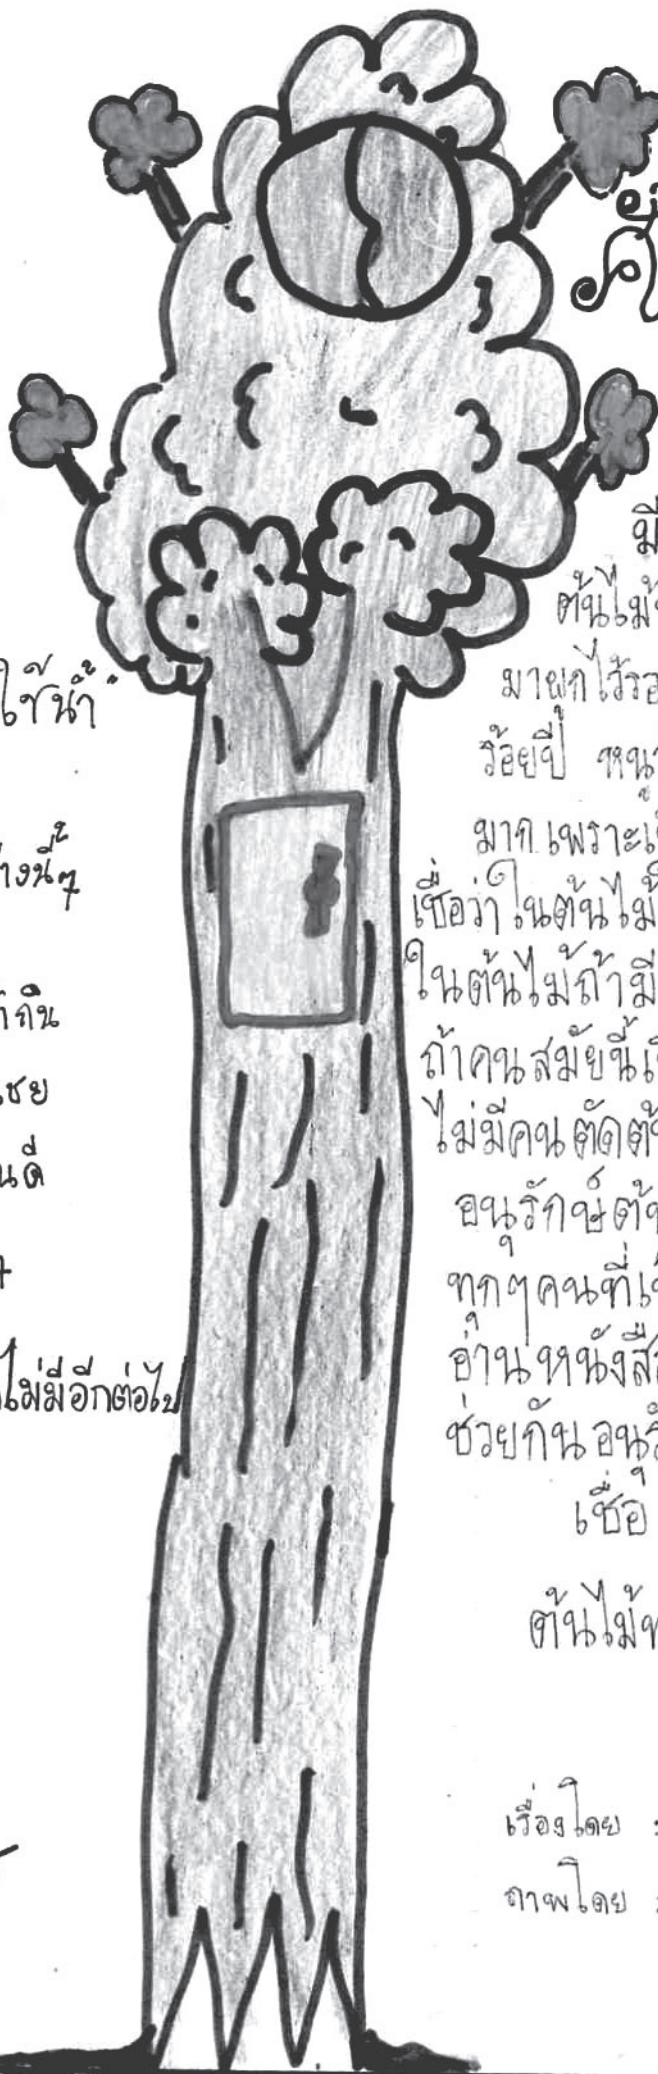 ใช้น้ำ"
างนี้ๆ
ากิน
เชย
นดี
ไม่มีอีกต่อไป
มี
ต้นไม้
มาผูกไว้รอ
ร้อยปี หนู
มาก เพราะเ
เชื่อว่าในต้นไม้
ในต้นไม้ถ้ามี
ถ้าคนสมัยนี้เ
ไม่มีคนตัดต้
อนุรักษ์ต้
ทุกๆคนที่เ
อ่านหนังสื
ช่วยกันอนุรั
เชื่อ
ต้นไม้
เรื่องโดย :
ภาพโดย :